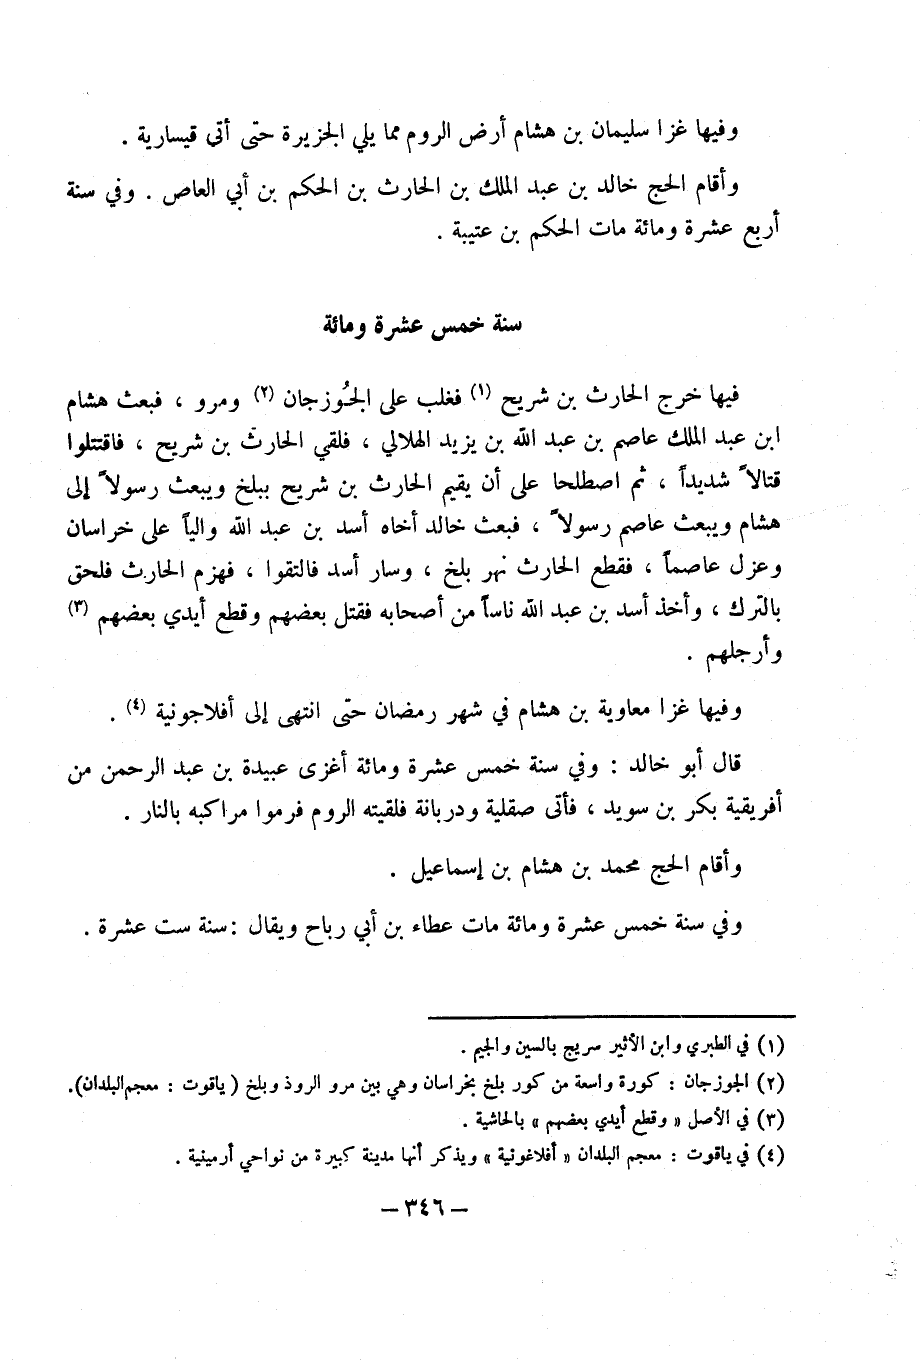 وفيها غزا سليمان بن هشام أرض الروم مما يلي الجزيرة حتى أتى قيسارية .
وأقام الحج خالد بن عبد الملك بن الحارث بن الحكم بن أبي العاص . وفي سنة
أربع عشرة ومائة مات الحكم بن عتيبة .
سنة خمس عشرة ومائة
فيها خرج الحارث بن شريح (١) فغلب على الجُوزجان (٢) ومرو ، فبعث هشام
ابن عبد الملك عاصم بن عبد الله بن يزيد الهلالي ، فلقي الحارث بن شريح ، فاقتتلوا
قتالاً شديداً ، ثم اصطلحا على أن يقيم الحارث بن شريح ببلخ ويبعث رسولاً إلى
هشام ويبعث عاصم رسولاً ، فبعث خالد أخاه أسد بن عبد الله والياً على خراسان
وعزل عاصماً ، فقطع الحارث نهر بلخ ، وسار أسد فالتقوا ، فهزم الحارث فلحق
بالترك ، وأخذ أسد بن عبد الله ناساً من أصحابه فقتل بعضهم وقطع أيدي بعضهم (٣)
وأرجلهم .
وفيها غزا معاوية بن هشام في شهر رمضان حتى انتهى إلى أفلاجونية (٤) .
قال أبو خالد : وفي سنة خمس عشرة ومائة أغزى عبيدة بن عبد الرحمن من
أفريقية بكر بن سويد ، فأتى صقلية ودربانة فلقيته الروم فرموا مراكبه بالنار .
وأقام الحج محمد بن هشام بن إسماعيل .
وفي سنة خمس عشرة ومائة مات عطاء بن أبي رباح ويقال : سنة ست عشرة .
(١) في الطبري وابن الأثير سريج بالسين والجيم .
(٢) الجوزجان : كورة واسعة من كور بلخ بخراسان وهي بين مرو الروذ وبلخ ( ياقوت : معجم البلدان).
(٣) في الأصل « وقطع أيدي بعضهم » بالحاشية .
(٤) في ياقوت : معجم البلدان « أفلاغونية » ويذكر أنها مدينة كبيرة من نواحي أرمينية .
— ٣٤٦ —